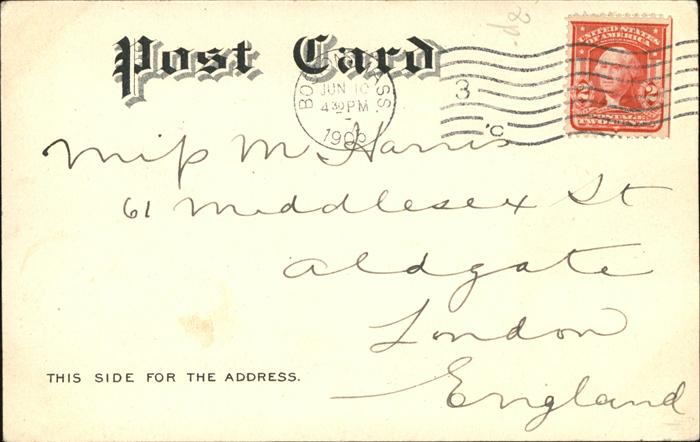 Post Card
JUN 10
4 30 PM
190
3
'C
d2
UNITED STATES
OF AMERICA
2 2
POSTAGE
TWO
Miss M Harris
61 Middlesex St
Aldgate
London
England
THIS SIDE FOR THE ADDRESS.